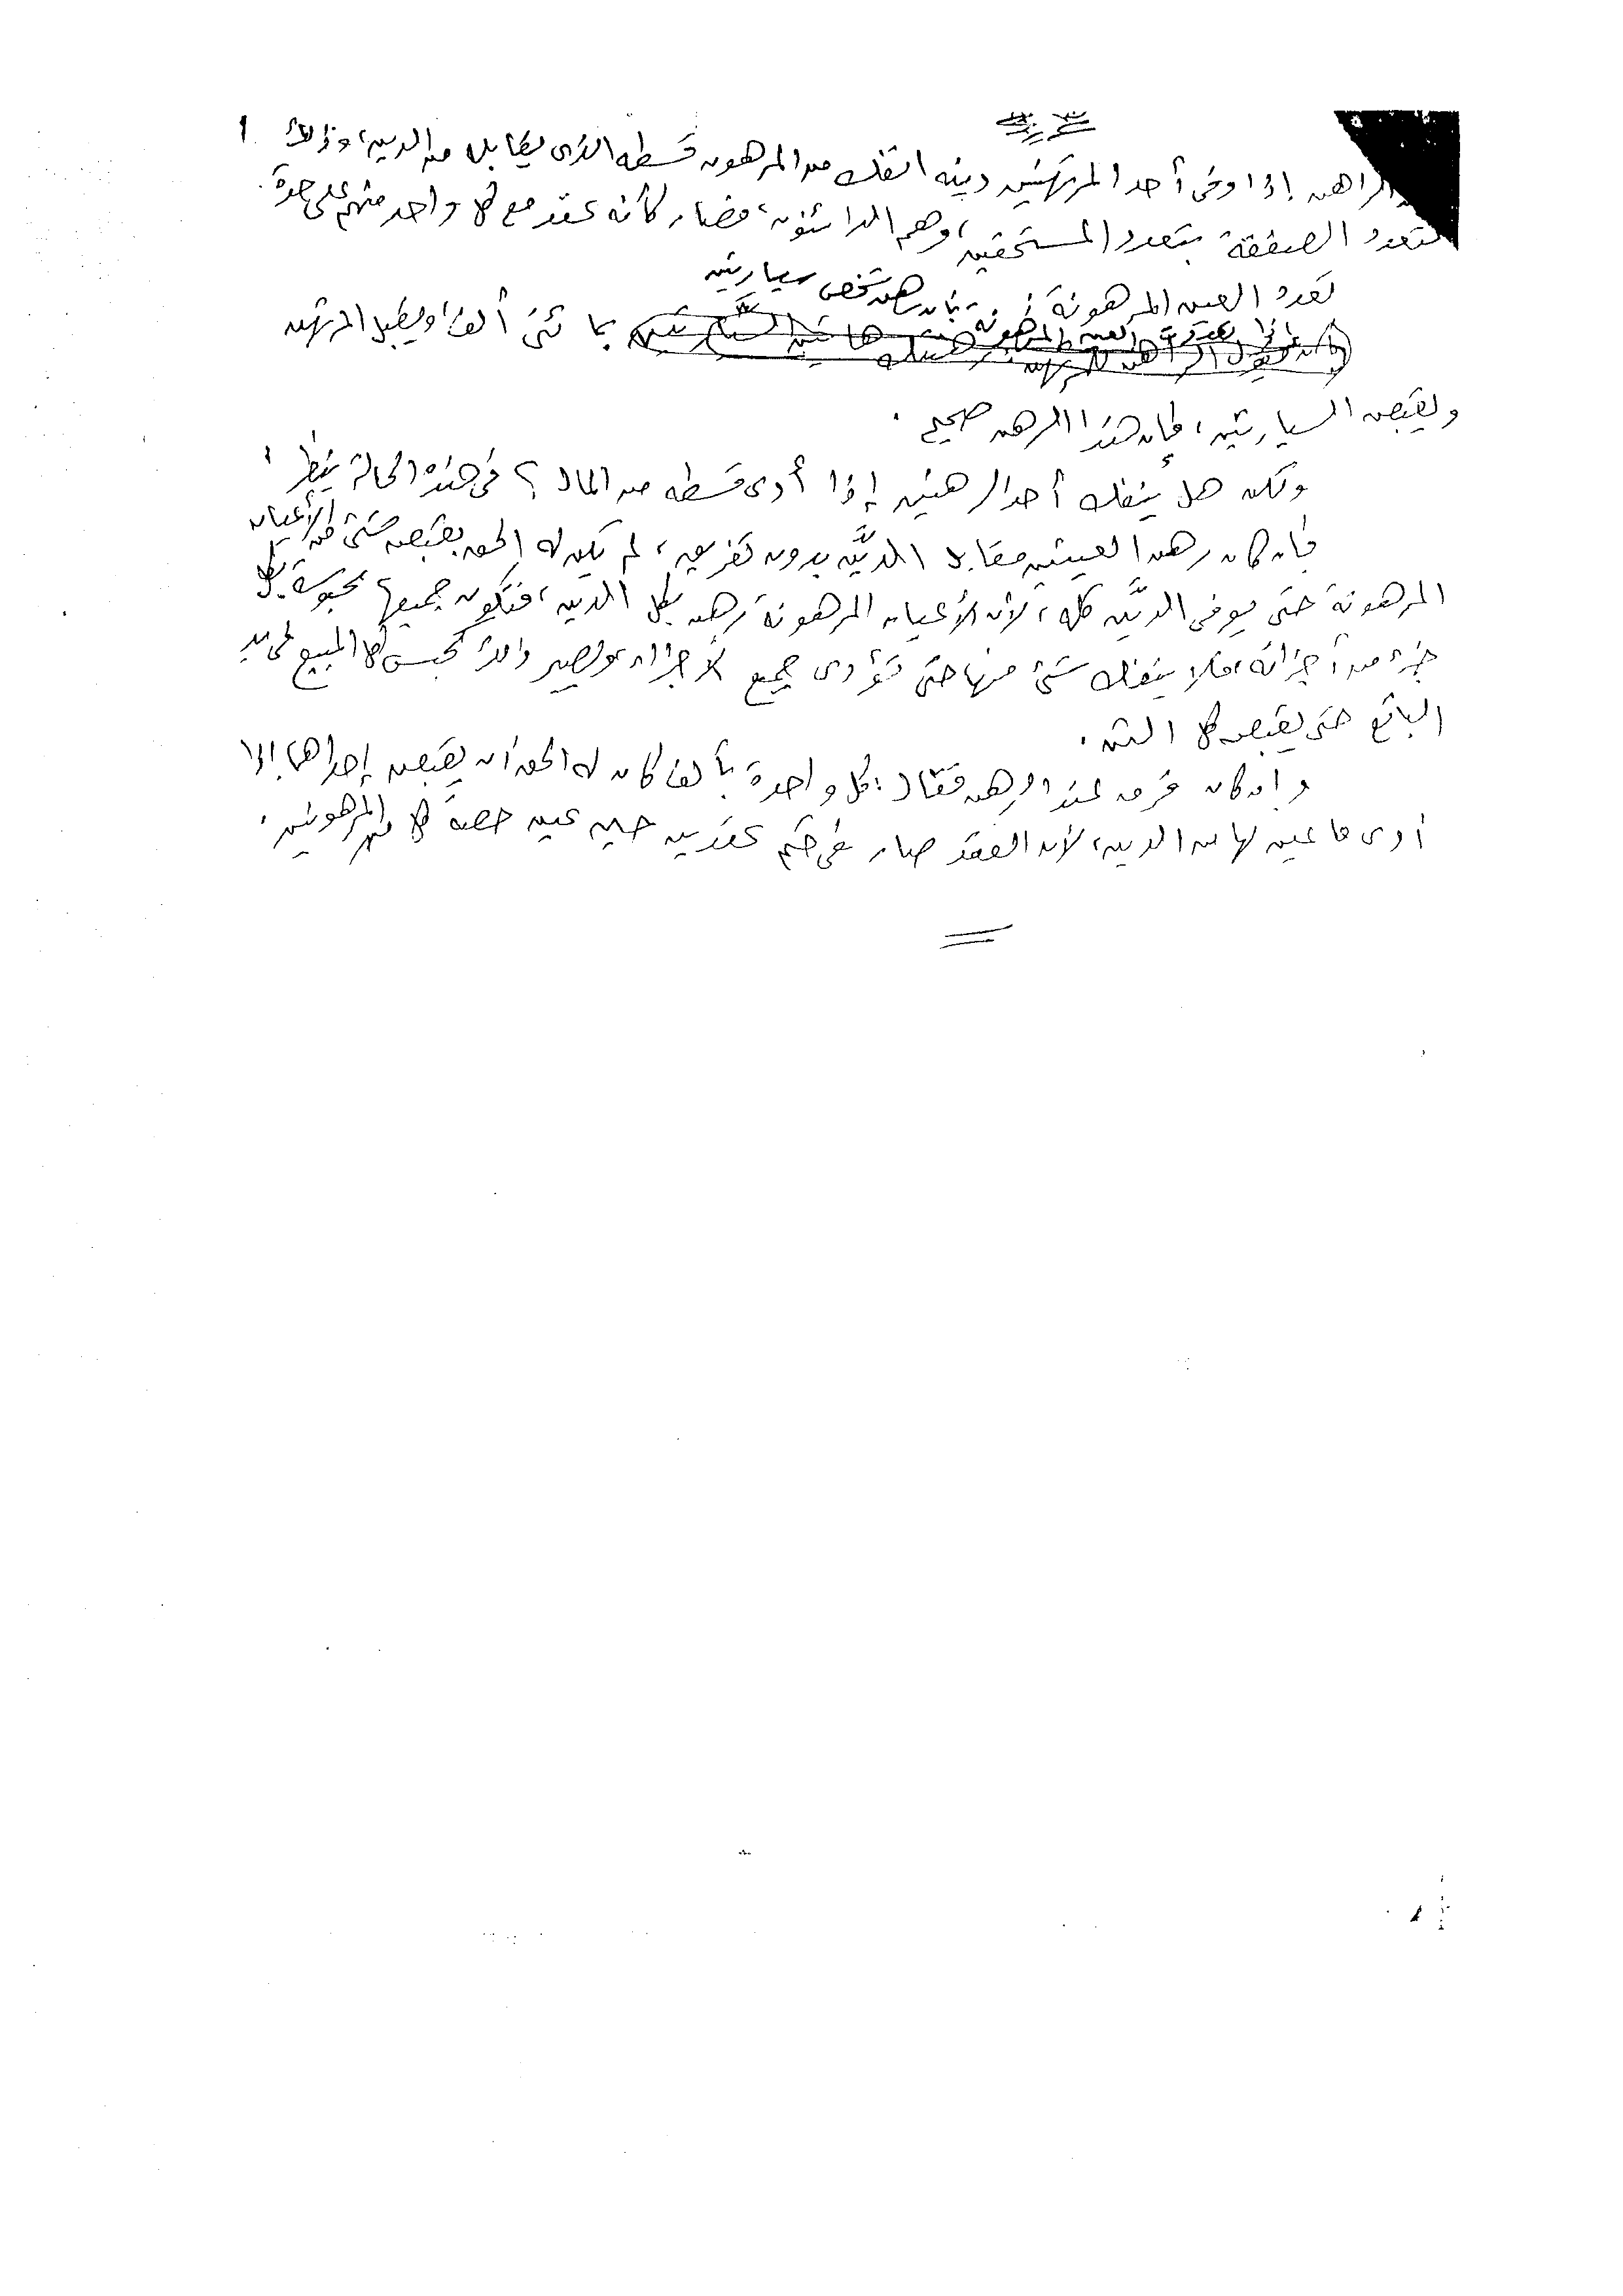 الراهن إذا وفى أحد المرتهنين دينه انفك من المرهون قسطه الذى يقابل من الدين، وذلك
لتعدد الصفقة بتعدد المستحقين، وهم الدائنون، فصار كأنه عقد مع كل واحد منهم على حدة.
تعدد العين المرهونة: بأن رهن شخص سيارتين
بمائتى ألف، ويقبل المرتهن
ويقبض السيارتين، فإن هذا الرهن صحيح.
ولكن هل يُنفك أحد الرهنين إذا أدى قسطه من المال؟ فى هذه الحالة ينظر:
فإن كان رهن العينين مقابل الديَّن بدون تفريق، لم يكن له الحق بقبض شئ من الأعيان
المرهونة حتى يوفى الديَّن كله، لأن الأعيان المرهونة رهن بكل الدين، فتكون جميعها محبوسة بكل
جزء من أجزائه، فلا ينفك شئ منها حتى تؤدى جميع الأجزاء، ويصير ذلك كحبس كل المبيع فى يد
البائع حتى يقبض كل الثمن.
وإن كان فرق عند الرهن فقال: كل واحدة بألف كان له الحق أن يقبض إحداها إذا
أدى ما عين لها من الدين، لأن العقد صار فى حكم عقدين حين عين حصة كل من المرهونين.